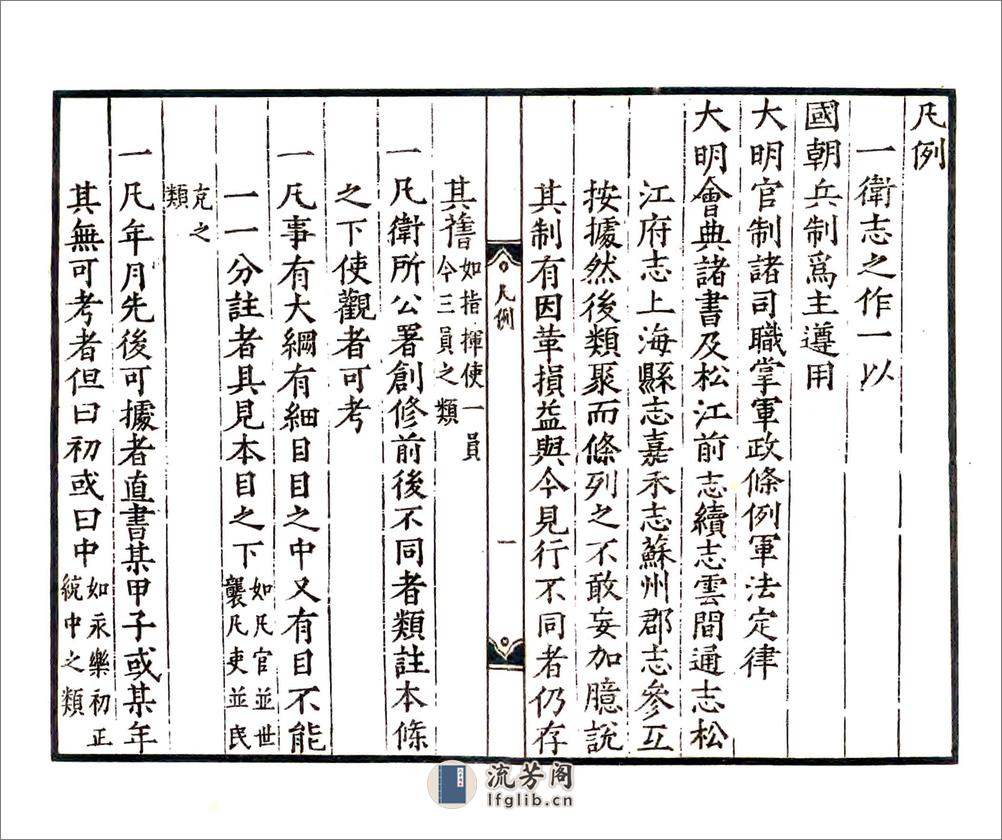 凡例
一衛志之作一以
國朝兵制爲主遵用
大明官制諸司職掌軍政條例軍法定律
大明會典諸書及松江前志續志雲間通志松
江府志上海縣志嘉禾志蘇州郡志參互
按據然後類聚而條列之不敢妄加臆說
其制有因革損益與今見行不同者仍存
其舊如指揮使一員
今三員之類
凡例
一
一凡衛所公署創修前後不同者類註本條
之下使觀者可考
一凡事有大綱有細目目之中又有目不能
一一分註者具見本目之下如凡官並世
襲凡吏並民
充之
類
一凡年月先後可據者直書某甲子或某年
其無可考者但曰初或曰中如永樂初正
統中之類
流芳阁
lfglib.cn